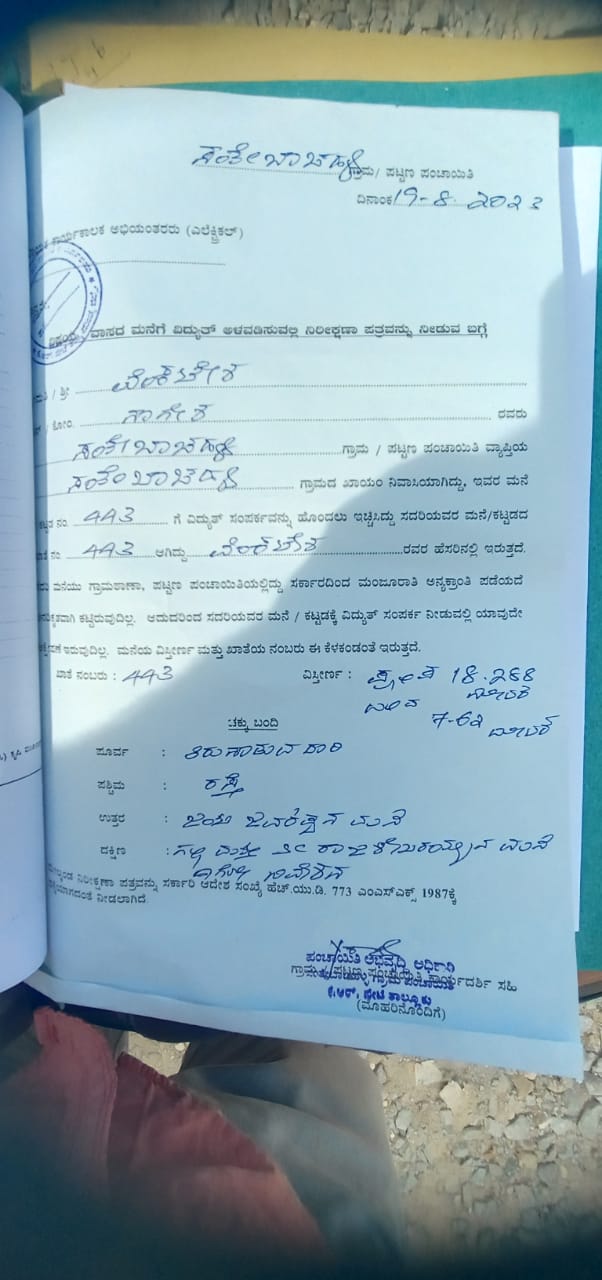 ಸಂತೇಬಾಚಹಳ್ಳಿ ಗ್ರಾಮ/ ಪಟ್ಟಣ ಪಂಚಾಯಿತಿ
ದಿನಾಂಕ 19-8-2023
ಕಾರ್ಯಕಾಲಕ ಅಭಿಯಂತರರು (ಎಲೆಕ್ಟ್ರಿಕಲ್)
ವಾಸದ ಮನೆಗೆ ವಿದ್ಯುತ್ ಅಳವಡಿಸುವಲ್ಲಿ ನಿರೀಕ್ಷಣಾ ಪತ್ರವನ್ನು ನೀಡುವ ಬಗ್ಗೆ
/ ಶ್ರೀ ವೆಂಕಟೇಶ
/ ಕೋಂ. ನಾಗೇಶ ರವರು
ಸಂತೇಬಾಚಹಳ್ಳಿ ಗ್ರಾಮ / ಪಟ್ಟಣ ಪಂಚಾಯಿತಿ ವ್ಯಾಪ್ತಿಯ
ಸಂತೇಬಾಚಹಳ್ಳಿ ಗ್ರಾಮದ ಖಾಯಂ ನಿವಾಸಿಯಾಗಿದ್ದು, ಇವರ ಮನೆ
ಕಟ್ಟಡ ನಂ. 443 ಗೆ ವಿದ್ಯುತ್ ಸಂಪರ್ಕವನ್ನು ಹೊಂದಲು ಇಚ್ಛಿಸಿದ್ದು ಸದರಿಯವರ ಮನೆ/ಕಟ್ಟಡದ
ನಂ 443 ಆಗಿದ್ದು ವೆಂಕಟೇಶ ರವರ ಹೆಸರಿನಲ್ಲಿ ಇರುತ್ತದೆ.
ಮನೆಯು ಗ್ರಾಮಠಾಣಾ, ಪಟ್ಟಣ ಪಂಚಾಯಿತಿಯಲ್ಲಿದ್ದು ಸರ್ಕಾರದಿಂದ ಮಂಜೂರಾತಿ ಅನ್ಯಕ್ರಾಂತಿ ಪಡೆಯದೆ
ಕಟ್ಟಿರುವುದಿಲ್ಲ. ಆದುದರಿಂದ ಸದರಿಯವರ ಮನೆ / ಕಟ್ಟಡಕ್ಕೆ ವಿದ್ಯುತ್ ಸಂಪರ್ಕ ನೀಡುವಲ್ಲಿ ಯಾವುದೇ
ಇರುವುದಿಲ್ಲ. ಮನೆಯ ವಿಸ್ತೀರ್ಣ ಮತ್ತು ಖಾತೆಯ ನಂಬರು ಈ ಕೆಳಕಂಡಂತೆ ಇರುತ್ತದೆ.
ಖಾತೆ ನಂಬರು : 443 ವಿಸ್ತೀರ್ಣ : 18.288
ಮೀಟರ್
7-62 ಮೀಟರ್
ಚಕ್ಕು ಬಂದಿ
ಪೂರ್ವ : ತಿರುಗಾಡುವ ದಾರಿ
ಪಶ್ಚಿಮ : ರಸ್ತೆ
ಉತ್ತರ : ಮನೆ
ದಕ್ಷಿಣ : ಗಲ್ಲಿ ಮತ್ತು ಮನೆ
ಹಾಗೂ ನಿವೇಶನ
ನಿರೀಕ್ಷಣಾ ಪತ್ರವನ್ನು ಸರ್ಕಾರಿ ಆದೇಶ ಸಂಖ್ಯೆ ಹೆಚ್.ಯು.ಡಿ. 773 ಎಂಎಸ್ಎಕ್ಸ್ 1987ಕ್ಕೆ
ನೀಡಲಾಗಿದೆ.
ಪಂಚಾಯಿತಿ ಅಭಿವೃದ್ಧಿ ಅಧಿಕಾರಿ
ಗ್ರಾಮ / ಪಟ್ಟಣ ಪಂಚಾಯಿತಿ ಕಾರ್ಯದರ್ಶಿ ಸಹಿ
ಕೆ.ಆರ್. ಪೇಟೆ ತಾಲ್ಲೂಕು
(ಮೊಹರಿನೊಂದಿಗೆ)